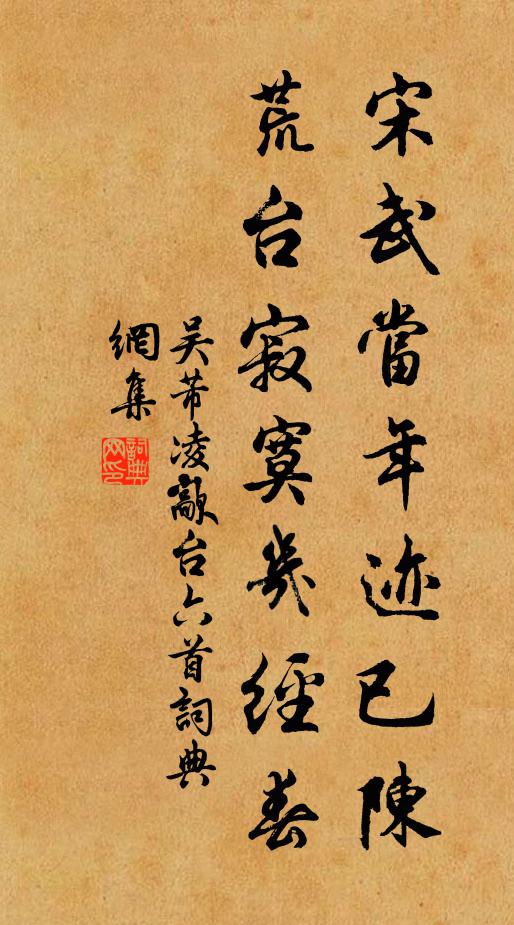 宋武當年迹已陳
荒台寂寞幾經春
吴芾凌歊台六首詞典
網集
詞典网印